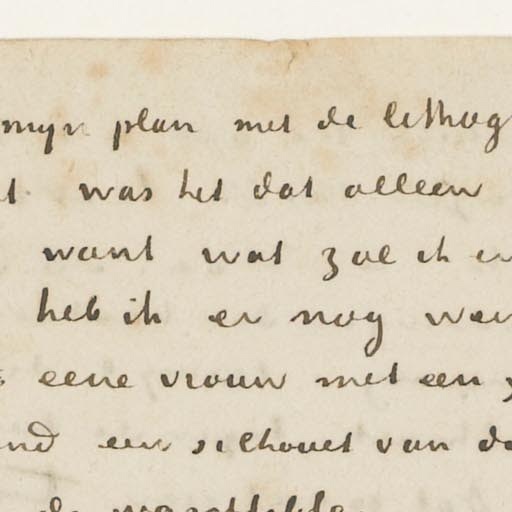 myn plan met de lithog
t was het dat alleen
want wat zal ik er
heb ik er nog wer
s eene vrouw met een
nd een silhouet van d
de